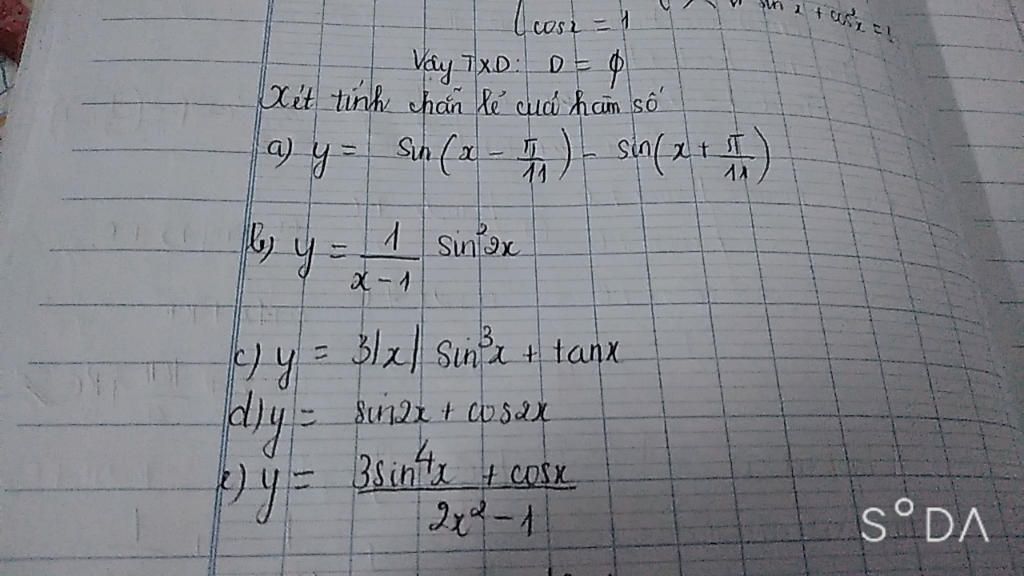 cosx = 1
sin²x + cos²x = 1
Vậy TXD: D = ϕ
Xét tính chẵn lẻ của hàm số
a) y = sin(x - π/11) - sin(x + π/11)
b) y = 1/(x-1) sin²2x
c) y = 3|x| sin³x + tanx
d) y = sin2x + cos2x
e) y = (3sin⁴x + cosx)/(2x² - 1)
S°DA